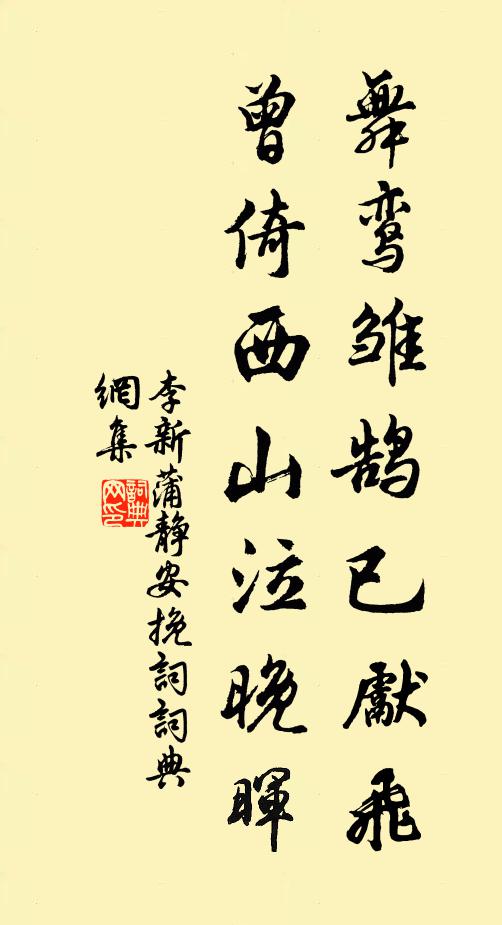 舞鸾雏鹄已獻飛
曾倚西山泣晚暉
李新蒲靜安挽詞詞典
網集
詞典網印